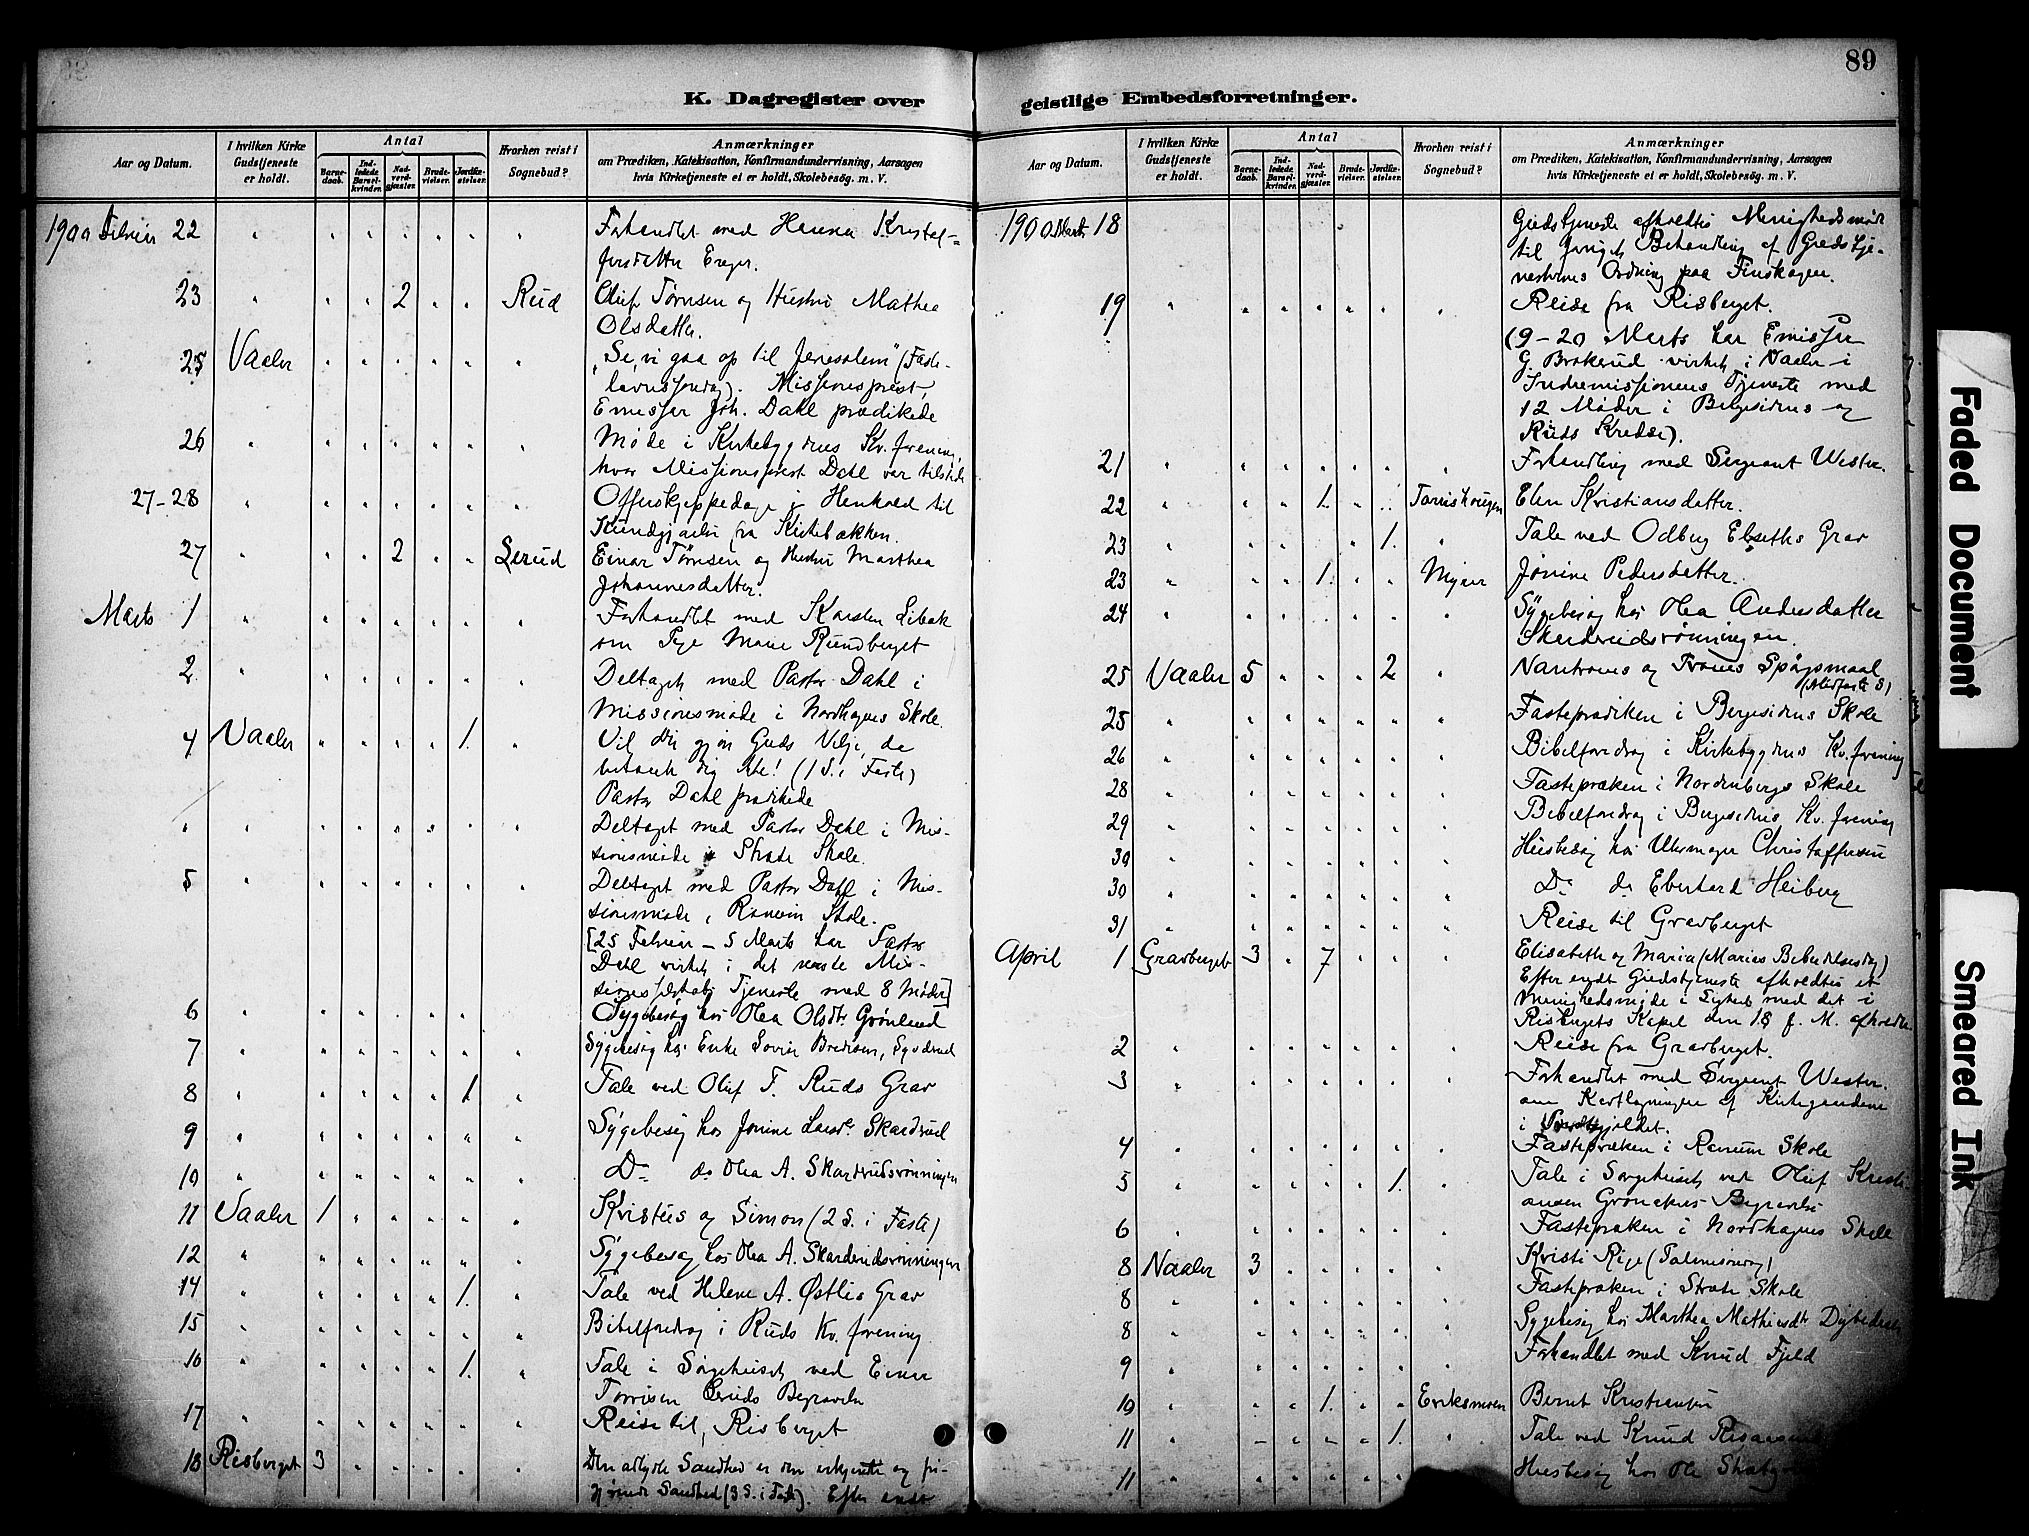 89
K. Dagregister over
Aar og Datum.
I hvilken Kirke Gudstjeneste er holdt.
Antal
Barnedaab.
Indledede Barselkvinder.
Nadverdgjæster.
Brudevielser.
Jordfæstelser.
Hvorhen reist i Sognebud?
Anmærkninger
om Prædiken, Katekisation, Konfirmandundervisning, Aarsagen
hvis Kirketjeneste ei er holdt, Skolebesög. m. V.
1900 Februar 22 Forhandlet med Hanna Kristof-
fersdatter Enger.
23 2 Rud Oluf Tørrisen og Hustru Mathea
Olsdatter.
25 Vaaler "Se, vi gaa op til Jerusalem" (Faste-
lavnssøndag). Missionsprest,
Emissær Joh. Dahl prædikede
26 Møde i Kirkebygdens Kv. forening,
hvor Missionsprest Dahl var tilstede
27-28 Offerskjeppedage i Henhold til
Kundgjørelse fra Kirkebakken.
27 2 Lerud Einar Tørrisen og Hustru Marthea
Johannesdatter.
Marts 1 Forhandlet med Karsten Libak
om Pige Marie Rundberget
2 Deltaget med Pastor Dahl i
Missionsmøde i Nordhagens Skole
4 Vaaler 1. Vil du gjøre Guds Vilje, da
betænk dig ikke! (1 S. i Faste)
Pastor Dahl prædikede
Deltaget med Pastor Dahl i Mis-
sionsmøde i Stræte Skole.
5 Deltaget med Pastor Dahl i Mis-
sionsmøde i Ranum Skole.
[25 Februar - 5 Marts har Pastor
Dahl virket i det norske Mis-
sionsselskabs Tjeneste med 8 Møder]
6 Sygebesøg hos Olea Olsdtr Grønlund
7 Sygebesøg hos Enke Bredesen,
8 1 Tale ved Oluf T. Ruds Grav
9 Sygebesøg hos Jonine Skardrud
10 Do do Olea A. Skardrudsrønningen
11 Vaaler 1 Kristus og Simon (2 S. i Faste)
12 Sygebesøg hos Olea A. Skarderudsrønningen
14 1. Tale ved Helene A. Østlis Grav
15 Bibelforedrag i Ruds Kv. forening
16 1. Tale i Sørgehuset ved Einar
Tørrisen Leruds Begravelse
17 Reise til Risberget
18 Risberget 3 Den adlydte Sandhed er den erkjendte og fri-
gjørende Sandhed (3 S. i Faste). Efter endt
geistlige Embedsforretninger.
Aar og Datum.
I hvilken Kirke Gudstjeneste er holdt.
Antal
Barnedaab.
Indledede Barselkvinder.
Nadverdgjæster.
Brudevielser.
Jordfæstelser.
Hvorhen reist i Sognebud?
Anmærkninger
om Prædiken, Katekisation, Konfirmandundervisning, Aarsagen
hvis Kirketjeneste ei er holdt, Skolebesög. m. V.
1900 Marts 18 Gudstjeneste afholdtes Menighedsmøde
til Behandling af Gudstje-
nesternes Ordning paa Finskogen.
19 Reise fra Risberget.
(9-20 Marts har Emissær
G. Brokerud virket i Vaaler i
Indremissionens Tjeneste med
12 Møder i Bergesidens og
Ruds Kredse).
21 Forhandling med Sergeant Wester.
22 1. Tørrishougen Elen Kristiansdatter.
23 1. Tale ved Odberg Elseths Grav
23 1. Myrer Jonine Pedersdatter.
24 Sygebesøg hos Olea Andersdatter
Skarderudsrønningen.
25 Vaaler 5 2 Vantroens og Troens Spørgsmaal
(Midfaste S)
25 Fasteprædiken i Bergesidens Skole
26 Bibelforedrag i Kirkebygdens Kv. forening
28 Fastepræken i Nordenbergs Skole
29 Bibelforedrag i Bergesidens Kv. forening
30 Husbesøg hos Uhrmager Christoffersen
30 Do do Eberhard Heiberg
31 Reise til Gravberget
April 1 Gravberget 3 7 Elisabeth og Maria (Marias Bebudelsesdag)
Efter endt Gudstjeneste afholdtes et
Menighedsmøde i Lighed med det i
Risbergets Kapel den 18 f. M. afholdte
2 Reise fra Gravberget.
3 Forhandlet med Sergeant Wester.
om Kartlægningen af Kirkegaardene
i
4 Fastepræken i Ranum Skole
5 1. Tale i Sørgehuset ved Oluf Kristi-
ansen Begravelse
6 Fastepræken i Nordhagens Skole
8 Vaaler 3 Kristi Rige (Palmesøndag)
8 Fastepræken i Stræte Skole
8 Sygebesøg hos Marthea Mathisdtr
9 Forhandlet med Knud Fjeld
10 1. Eriksmoen Bernt Kristensen
11 1. Tale ved Knud
11 Husbesøg hos Ole
Faded Document
Smeared Ink